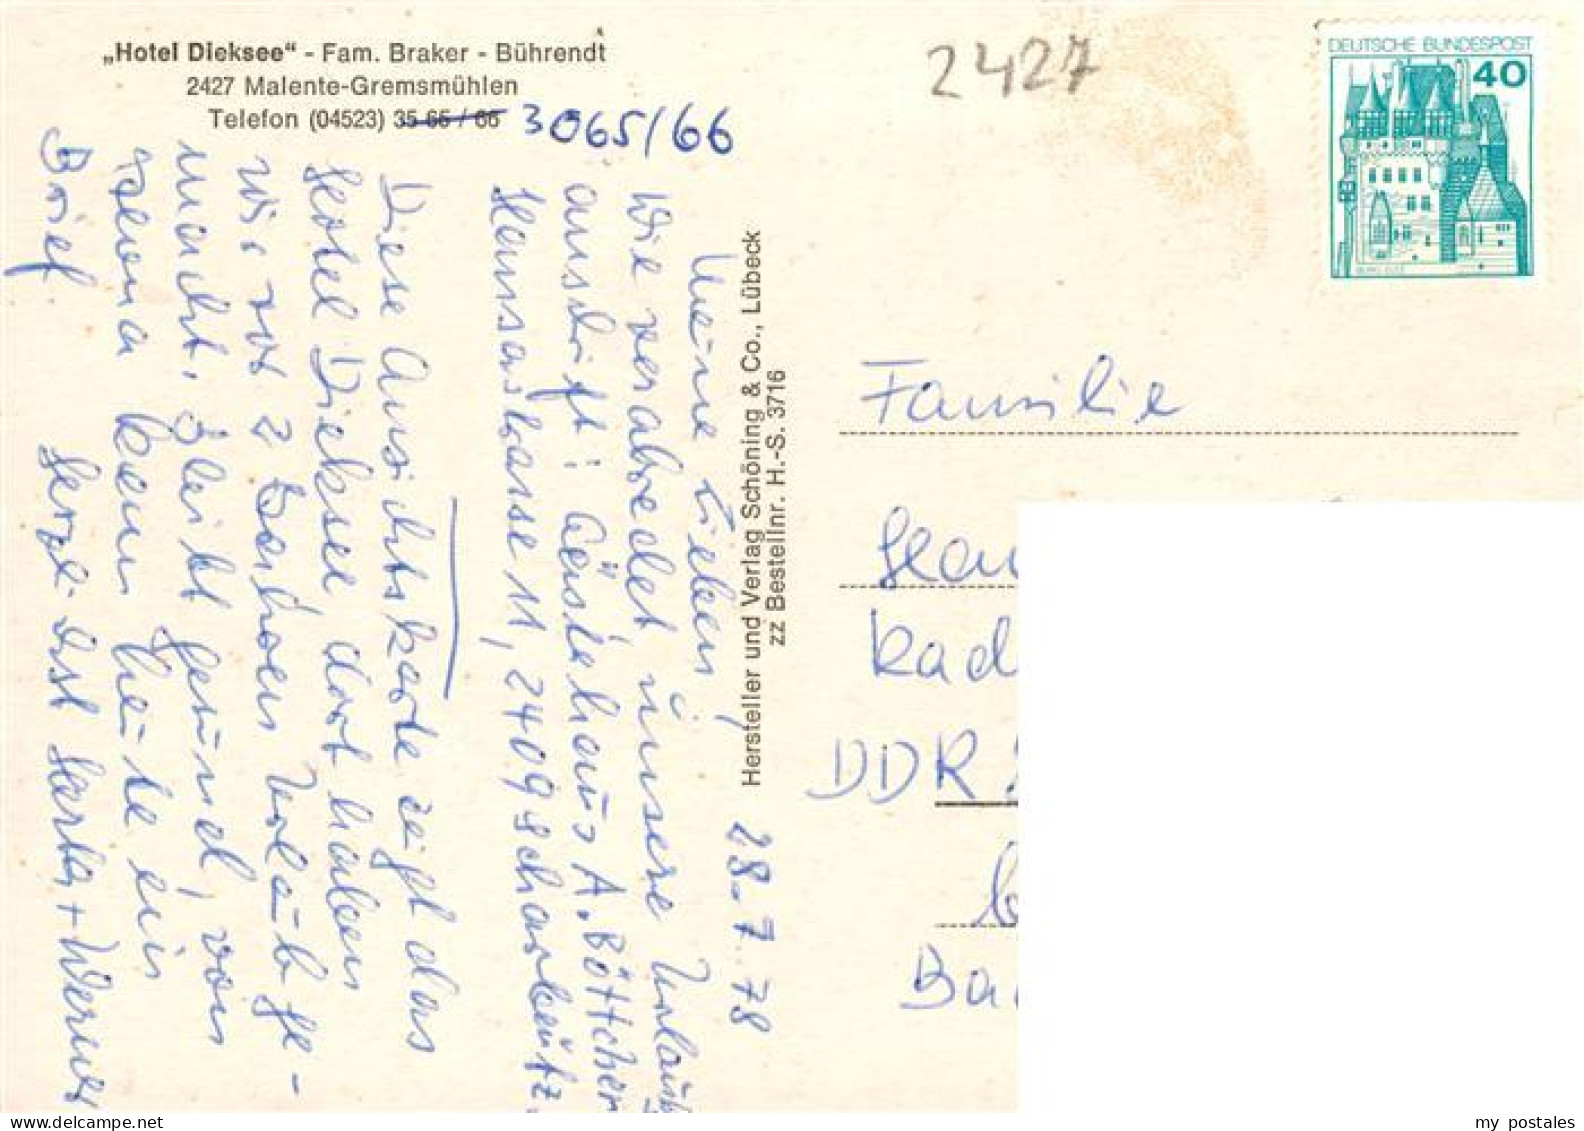 „Hotel Dieksee“ - Fam. Braker - Bührendt
2427 Malente-Gremsmühlen
Telefon (04523) 35 65 / 66 3065/66
2427
DEUTSCHE BUNDESPOST
40
BURG ELTZ
28.7.78
Meine Lieben,
Wie verabredet unsere Urlaub
anschrift: Gästehaus A. Böttcher
Hansastrasse 11, 2409 Scharbeutz.
Diese Ansichtskarte zeigt das
Hotel Dieksee dort haben
wir vor 2 Jahren Urlaub ge-
macht. Bleibt gesund, von
kam heute ein
Brief Herzlichst + Werner
Hersteller und Verlag Schöning & Co., Lübeck
zz Bestellnr. H.-S. 3716
Familie
Han
Rad
DDR
Ba
www.delcampe.net
my postales